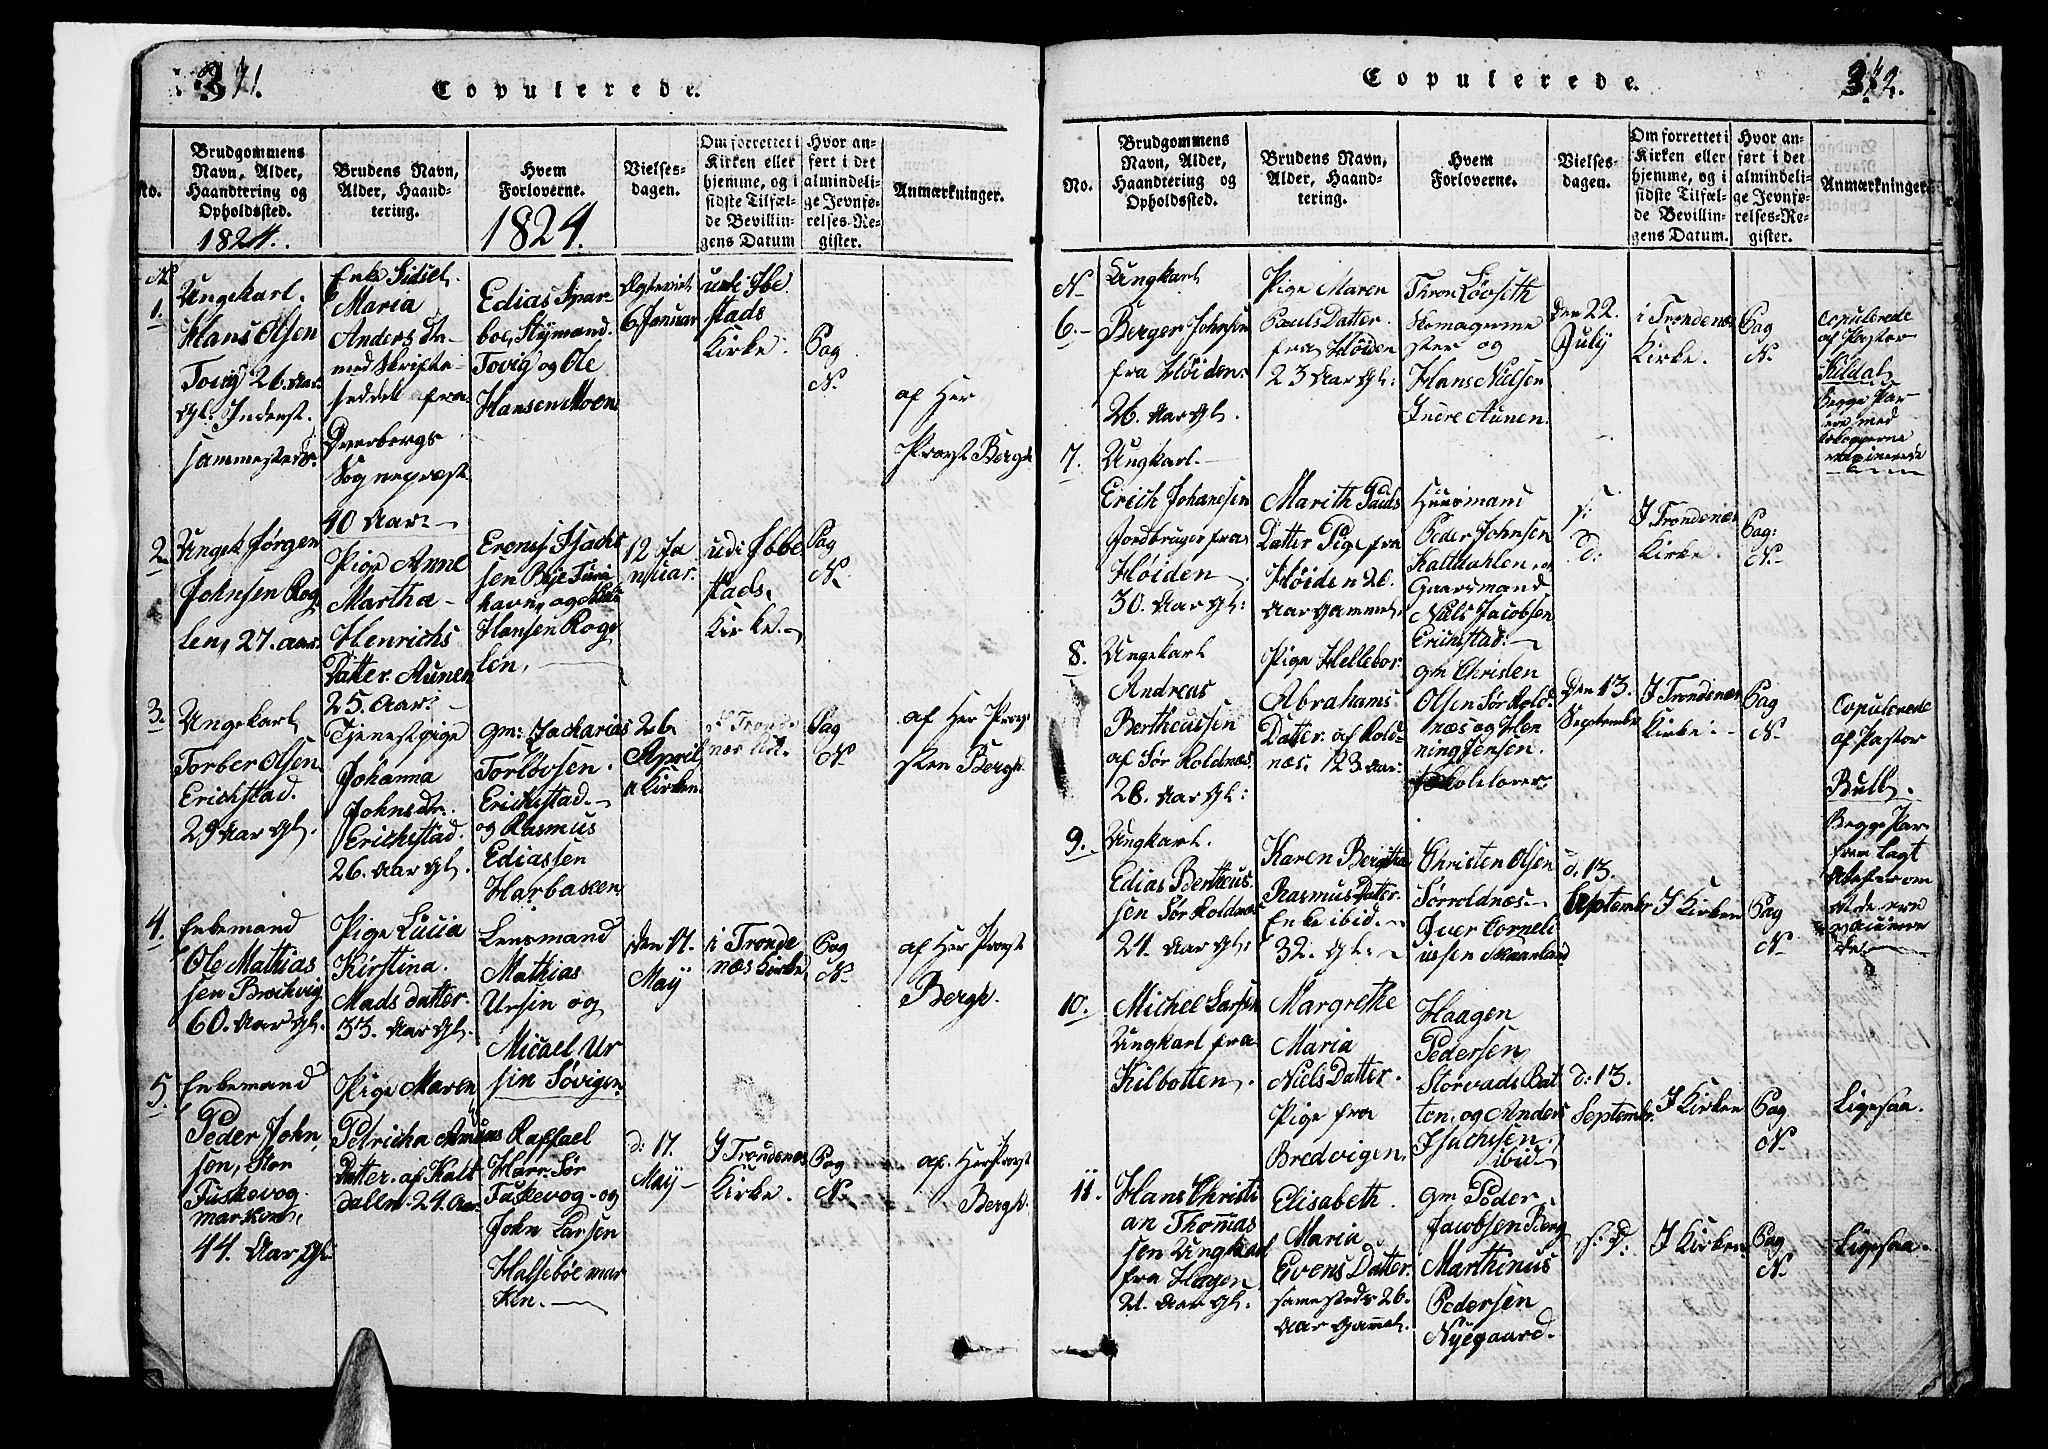 371.
Copulerede.
No.
Brudgommens
Navn, Alder,
Haandtering og
Opholdssted.
1824.
Brudens Navn,
Alder, Haand-
tering.
Hvem
Forloverne.
1824.
Vielses-
dagen.
Om forrettet i
Kirken eller
hjemme, og i
sidste Tilfæl-
de Bevillin-
gens Datum
Hvor an-
ført i det
almindeli-
ge Jevnfø-
relses-Re-
gister.
Anmærkninger.
N
1.
Ungekarl.
Hans Olsen
Tovig 26. Aar
Gl. Inderst.
sammesteds.
Enke Sidsel
Maria
Anders Da-
med Skrifte-
seddel fra
Dverbergs
Sognepræst
40 Aar
Edias Spar
boe, Stymand.
Tovig og Ole
Hansen Moen
6 Januar
udi Ibe
stads
Kirke.
Pag
N.
af Her
Provst Bergh
2
Ungek Jørgen
Johnsen Rog
len, 27. aar.
Pige Anne
Martha
Henrichs
Datter. Aunen
25. Aar.
sen
havn, og
Hansen Rog
len,
12 Ja
nuar.
udi Ibbe
stads,
Kirke.
Pag
N.
3.
Ungekarl
Torber Olsen
Erichstad.
29 Aar Gl.
Tjenestpige
Johanna
Johnsdr.
Erichstad.
26. Aar Gl.
gm: Zacharias
Torløvsen.
Erichstad.
og Rasmus
Ediassen
Harbakeen
26
April
i Kirken.
Pag
N.
af Her Prov
sten Bergh.
4.
Enkemand
Ole Mathias
sen Brokvig
60. Aar Gl.
Pige Lucia
Kirstina.
Mads datter.
33. Aar Gl.
Lensmand
Mathias
Ursin og
Micael Ur
sin Søvigen.
den 17.
May
i Tronde
næs Kirke
Pag
N.
af Her Provst
Bergh.
5
Enkemand
Peder John
sen, Stor
Fuskevog
marken,
44. Aar Gl.
Pige Maren
Petricha
Datter. af Kalt
dallen. 24. Aar.
Raffael
Harr. Sør
Fuskevog. og
John Larsen
Halsebøe mar
ken.
d: 17.
May
I Trondenæs
Kirke.
Pag
N.
af. Her Provst
Bergh.
Copulerede.
372.
No.
Brudgommens
Navn, Alder,
Haandtering og
Opholdssted.
Brudens Navn,
Alder, Haand-
tering.
Hvem
Forloverne.
Vielses-
dagen.
Om forrettet i
Kirken eller
hjemme, og i
sidste Tilfæl-
de Bevillin-
gens Datum.
Hvor an-
ført i det
almindeli-
ge Jevnfø-
relses-Re-
gister.
Anmærkninger
N
6.
Ungkarl
Berger Johnsen
fra Høiden.
26. Aar Gl.
Pige Maren
Pauls Datter.
fra Høiden
23 Aar Gl:
Thron Løvseth
Skomagerme
ster og
Hans Nielsen
Indre Aunen.
Den 22.
July
i Trondenæs
Kirke.
Pag
N.
Copulerede
af Pastor
Kildal
Begge Par
ere med
Kokopperne
vaxinerede
7.
Ungkarl.
Erich Johansen
Jordbruger fra
Høiden
30. Aar Gl:
Marith Pauls
Datter Pige fra
Høiden 20.
Aar gammel.
Huusmand
Peder Johnsen
Kaltdahlen. og
Gaardmand
Niels Jacobsen
Eriinstad.
s:
d:
I Trondenæs
Kirke.
Pag:
N.
8.
Ungekarl
Andreas
Bertheussen
af Sør Roldnæs.
26. Aar Gl:
Pige Hellebor
Abrahams
Datter. af Rold-
næs. 23 aar.
gm Christen
Olsen Sør Rold-
næs og Hen
ning Jensen.
Den 13.
September
I Trondenæs
Kirke.
Pag
N.
Copulerede
af Pastor
Bull.
Begge Par
9.
Ungkarl.
Edias Bertheus
sen Sør Roldnæs
24. Aar Gl:
Karen Bergtha
Rasmus Datter.
Enke ibid.
32. Gl:
Christen Olsen
Sørroldnæs.
Iver Corneli
ussen Skaanland
d. 13.
September
I Kirken
Pag
N.
10.
Michel Larsen
Ungkarl fra
Kilbotten.
Margrethe
Maria
Niels Datter.
Pige fra
Bredvigen.
Haagen
Pedersen
Storvads Bat
ten. og Anders
Isachsen.
ibid
d: 13.
September.
I Kirken
Pag
N.
Ligesaa.
11.
Hans Christi
an Thomas
sen Ungkarl
fra Hagen
21. Aar Gl:
Elisabeth.
Maria
Evens Datter.
samesteds 26.
Aar Gamel.
gm Peder
Jacobsen Berg
Marthinus
Pedersen
Nyegaard.
s: d:
I Kirken
Pag
N.
Ligesaa.